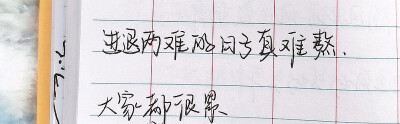 进退两难的日子真难熬.
大家都很累